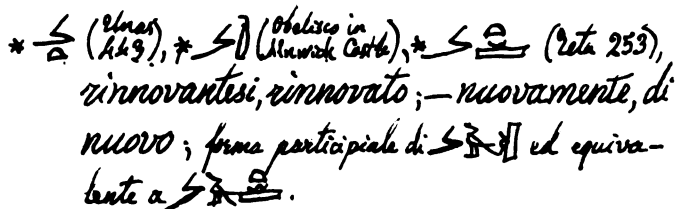 * (Unas 449), * (Obelisco in Alnwick Castle), * (Teta 253),
rinnovantesi, rinnovato; — nuovamente, di
nuovo; forma participiale di ed equiva-
lente a .